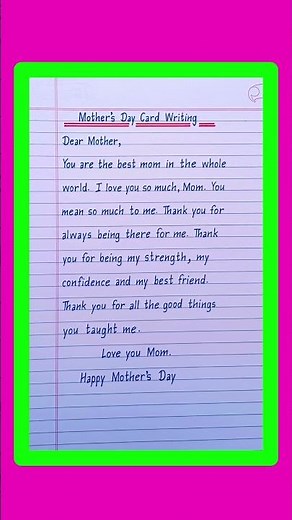 Mother's Day Card Writing
Dear Mother,
You are the best mom in the whole
world. I love you so much, Mom. You
mean so much to me. Thank you for
always being there for me. Thank
you for being my strength, my
confidence and my best friend.
Thank you for all the good things
you taught me.
Love you Mom.
Happy Mother's Day